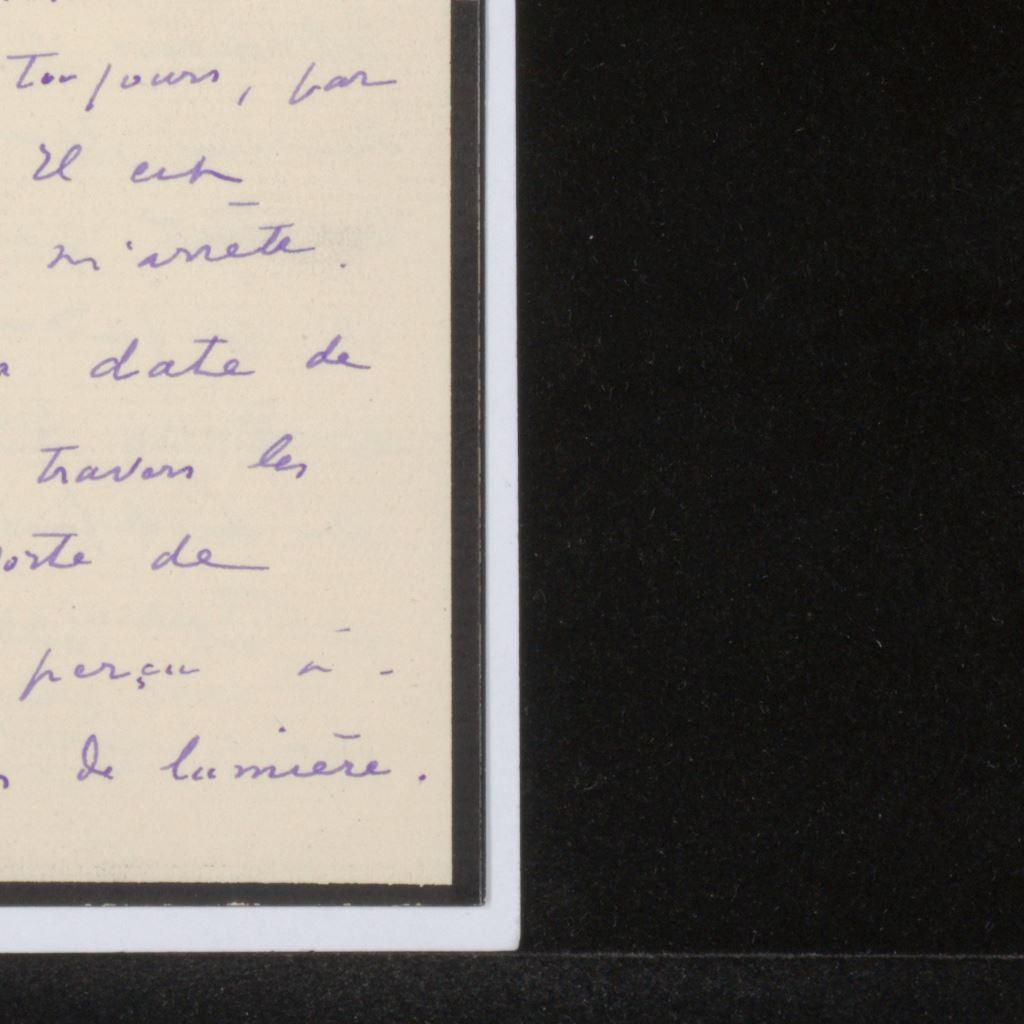 toujours, par
Il est
m'arrête.
date de
travers les
de
perçu à-
de lumière.